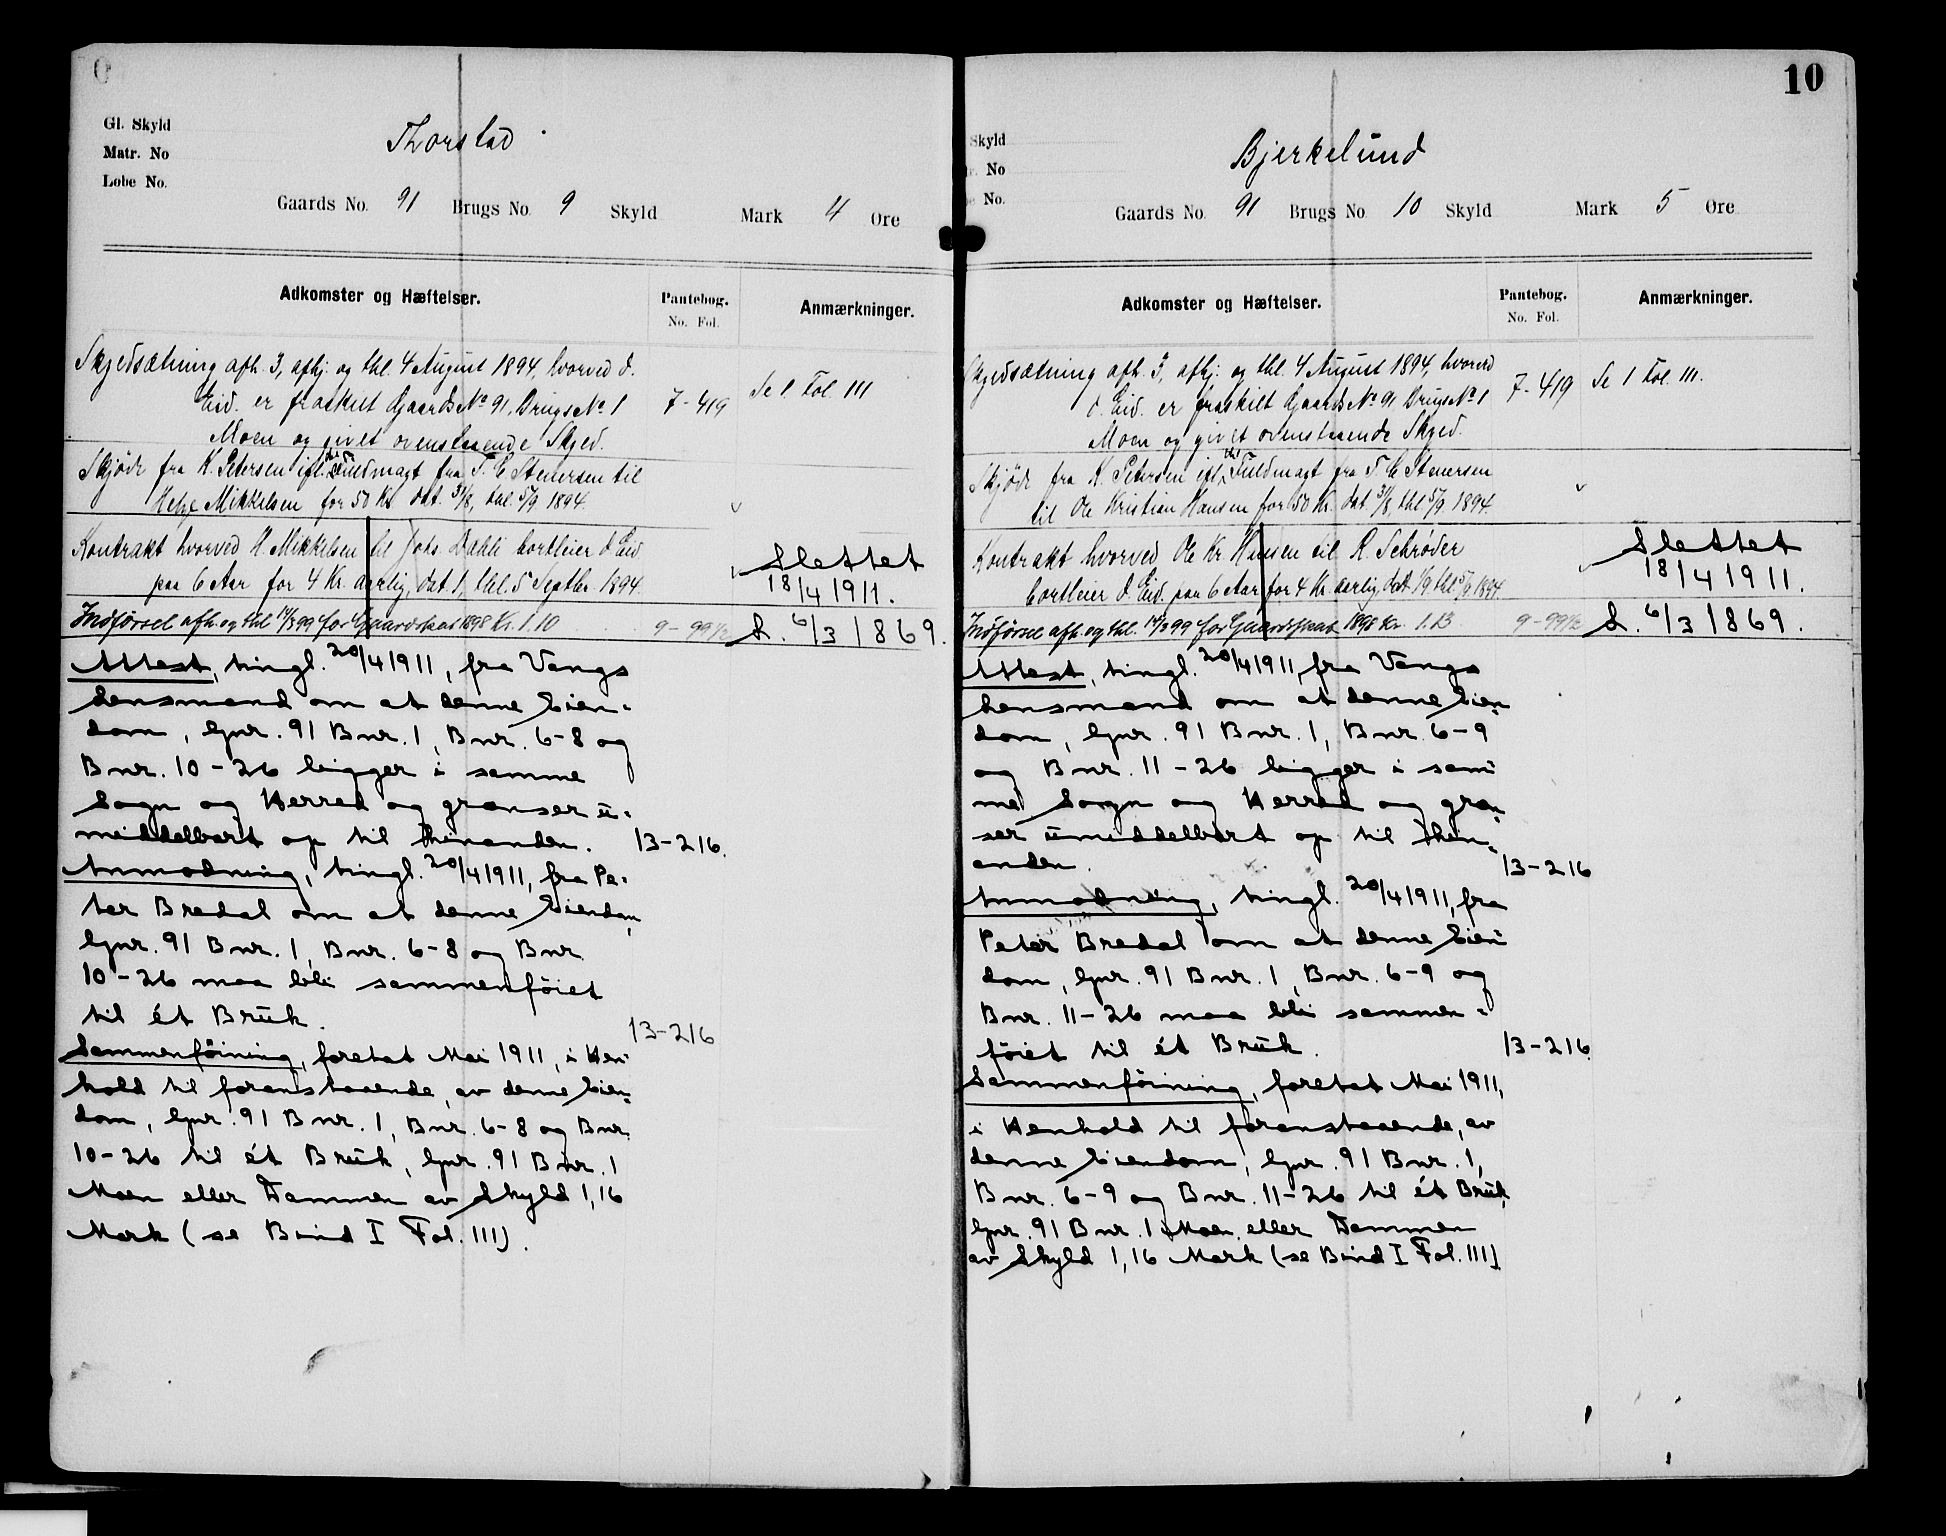 Gl. Skyld
Matr. No
Løbe No.
Thorstad
Gaards No. 91 Brugs No. 9 Skyld Mark 4 Øre
Adkomster og Hæftelser.
Pantebog.
No. Fol.
Anmærkninger.
Skyldsætning afh. 3, afhj. og thl. 4 August 1894, hvorved d.
Eid. er fraskilt Gaards No 91, Brugs No 1
7-419
Se 1 Fol. 111
Moen og givet ovenstaaende Skyld.
Skjøde fra K. Petersen ifl. Fuldmagt fra T. C. Stenersen til
Helge Mikkelsen for 50 Kr. dat. 31/8, thl. 5/9 1894.
Kontrakt hvorved H. Mikkelsen til Johs. Dahli bortleier d. Eid
paa 6 Aar for 4 Kr. aarlig, dat. 1, thl. 5 Septbr. 1894.
Slettet
18/4 1911.
Indførsel afh. og thl. 14/3 99 for Gaardskat 1898 Kr. 1.10
9-99 1/2
S. 6/3 1869.
Attest, tingl. 20/4 1911, fra Vangs
Lensmand om at denne Eien-
dom, Gnr. 91 Bnr. 1, Bnr. 6-8 og
Bnr. 10-26 ligger i samme
Sogn og Herred og grænser u-
middelbart op til hinanden.
13-216.
Anmodning, tingl. 20/4 1911, fra Pe-
ter Bredal om at denne Eiendom,
Gnr. 91 Bnr. 1, Bnr. 6-8 og Bnr
10-26 maa bli sammenføiet
til ét Bruk.
13-216
Sammenføining, foretat Mai 1911, i Hen-
hold til foranstaaende, av denne Eien-
dom, Gnr. 91 Bnr. 1, Bnr. 6-8 og Bnr.
10-26 til ét Bruk, Gnr. 91 Bnr. 1
Moen eller Dammen av Skyld 1,16
Mark (se Bind I Fol. 111).
10
Skyld
No
No.
Bjerkelund
Gaards No. 91 Brugs No 10 Skyld Mark 5 Øre
Adkomster og Hæftelser.
Pantebog.
No. Fol.
Anmærkninger.
Skyldsætning afh. 3, afhj. og thl. 4 August 1894, hvorved
d. Eid. er fraskilt Gaards No 91 Brugs No 1
7-419
Se 1 Fol. 111.
Moen og givet ovenstaaende Skyld.
Skjøde fra K. Petersen ifl. Fuldmagt fra T C Stenersen
til Ole Kristian Hansen for 50 Kr. dat. 31/8, thl 5/9 1894.
Kontrakt hvorved Ole Kr. Hansen til R. Schrøder
bortleier d. Eid. paa 6 Aar for 4 Kr. aarlig, dat 1/9 thl 5/9 1894
Slettet
18/4 1911.
Indførsel afh. og thl. 14/3 99 for Gaardskat 1898 Kr. 1.13
9-99 1/2
S. 6/3 1869.
Attest, tingl. 20/4 1911, fra Vangs
Lensmand om at denne Eien-
dom, Gnr. 91 Bnr. 1, Bnr. 6-9
og Bnr. 11-26 ligger i sam-
me Sogn og Herred og græn-
ser umiddelbart op til hin-
anden.
13-216
Anmodning, tingl. 20/4 1911, fra
Peter Bredal om at denne Eien-
dom, Gnr. 91 Bnr. 1, Bnr. 6-9 og
Bnr. 11-26 maa bli sammen-
føiet til ét Bruk.
13-216
Sammenføining, foretat Mai 1911,
i Henhold til foranstaaende, av
denne Eiendom, Gnr. 91 Bnr. 1,
Bnr. 6-9 og Bnr. 11-26 til ét Bruk,
Gnr. 91 Bnr. 1 Moen eller Dammen
av Skyld 1,16 Mark (se Bind I Fol. 111)